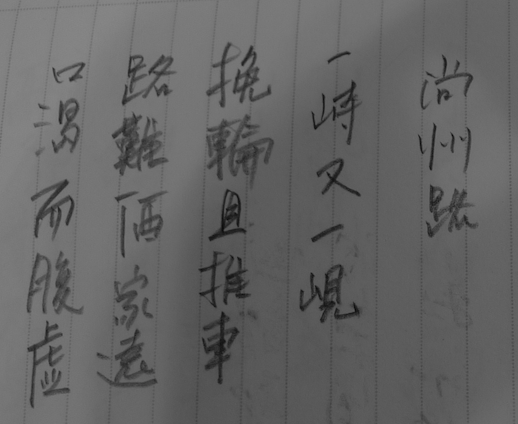 尚州路
一峙又一峴
挽輪且推車
路難酒家遠
口渴而腹虛